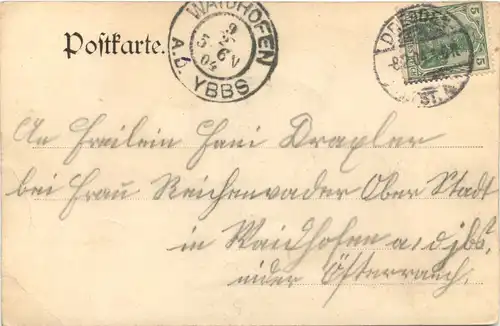 Postkarte.
WAIDHOFEN
A.D. YBBS
9
5
6 V
04
DRESDEN
5
5
ST.
An Freilein Hani Draxler
bei Frau Reichenvader Ober Stadt
in Waidhofen a, d jbs,
nider Östterrauch,